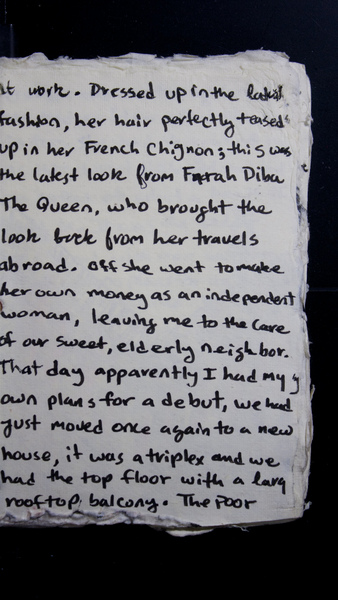 at work. Dressed up in the latest
fashion, her hair perfectly teased
up in her French Chignon; this was
the latest look from Farah Diba
The Queen, who brought the
look back from her travels
abroad. off she went to make
her own money as an independent
woman, leaving me to the care
of our sweet, elderly neighbor.
That day apparently I had my
own plans for a debut, we had
just moved once again to a new
house, it was a triplex and we
had the top floor with a larg
rooftop balcony. The Poor